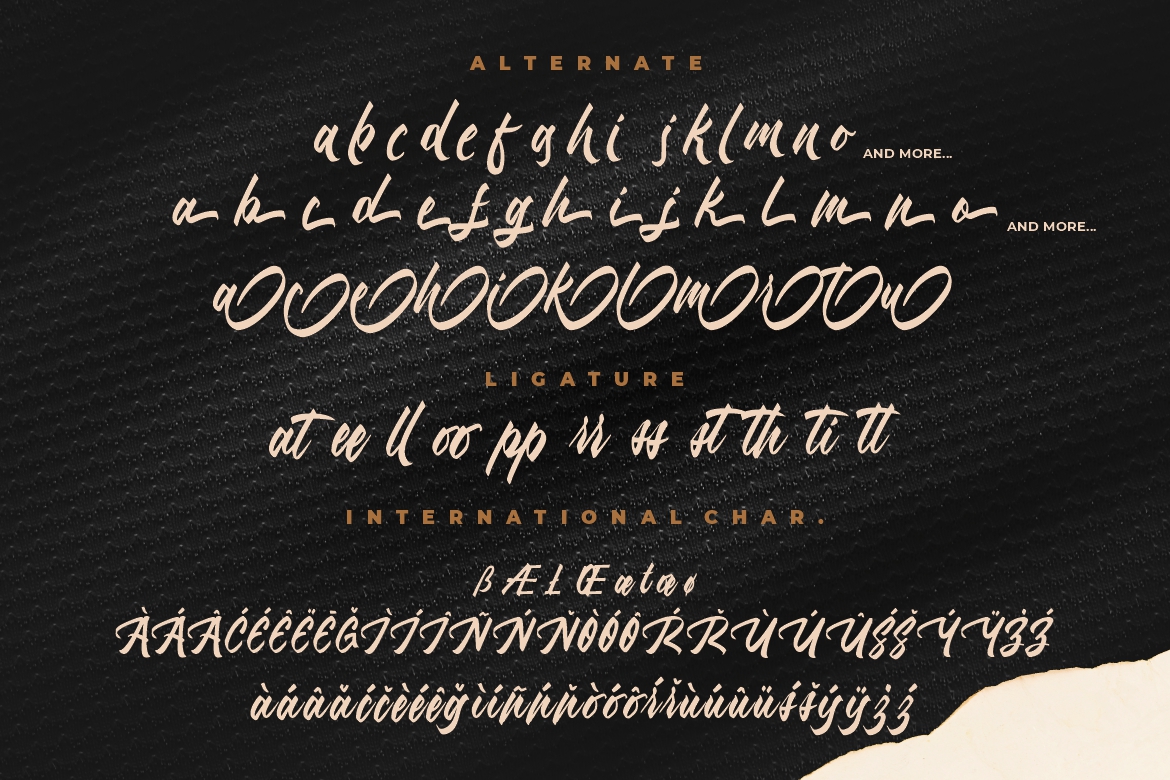 ALTERNATE
a b c d e f g h i j k l m n o AND MORE...
a b c d e f g h i j k l m n o AND MORE...
a c e h i k l m r t u
LIGATURE
at ee ll oo pp rr ss st th ti tt
INTERNATIONAL CHAR.
ß Æ Ł Œ æ ł œ ø
ÀÁÂĆÉÊËĒĞÌÍÎÑŃŇÒÓÔŔŘÙÚÛŚŠÝŸŻŹ
àáâăćčèéêğìíñńňòóôŕřùúûüśšýÿżź